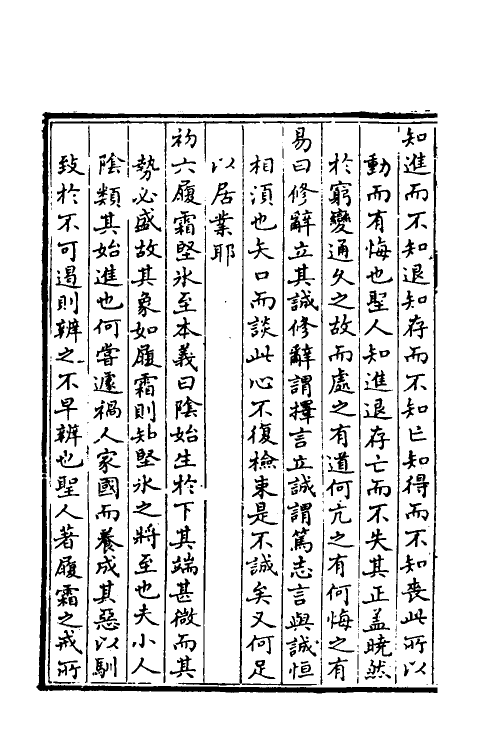 知進而不知退知存而不知亡知得而不知喪此所以
動而有悔也聖人知進退存亡而不失其正盖曉然
於窮變通久之故而處之有道何亢之有何悔之有
易曰修辭立其誠修辭謂擇言立誠謂篤志言與誠恒
相湏也矢口而談此心不復檢束是不誠矣又何足
以居業耶
初六履霜堅氷至本義曰陰始生於下其端甚微而其
勢必盛故其象如履霜則知堅氷之將至也夫小人
陰類其始進也何嘗遽禍人家國而養成其惡以馴
致於不可遏則辨之不早辨也聖人著履霜之戒所